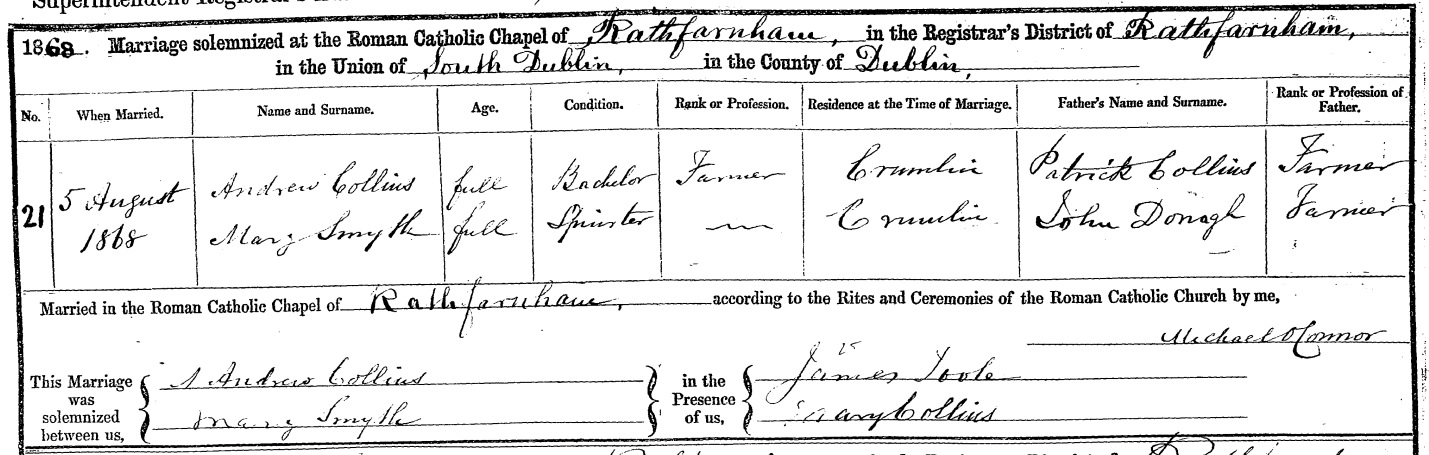 Superintendent Registrar's
1868. Marriage solemnized at the Roman Catholic Chapel of Rathfarnham, in the Registrar's District of Rathfarnham,
in the Union of South Dublin, in the County of Dublin,
No. When Married. Name and Surname. Age. Condition. Rank or Profession. Residence at the Time of Marriage. Father's Name and Surname. Rank or Profession of Father.
21 5 August 1868 Andrew Collins full Bachelor Farmer Crumlin Patrick Collins Farmer
Mary Smyth full Spinster — Crumlin John Donagh Farmer
Married in the Roman Catholic Chapel of Rathfarnham, according to the Rites and Ceremonies of the Roman Catholic Church by me,
Michael O'Connor
This Marriage was solemnized between us, Andrew Collins in the Presence of us, James Toole
Mary Smyth Mary Collins